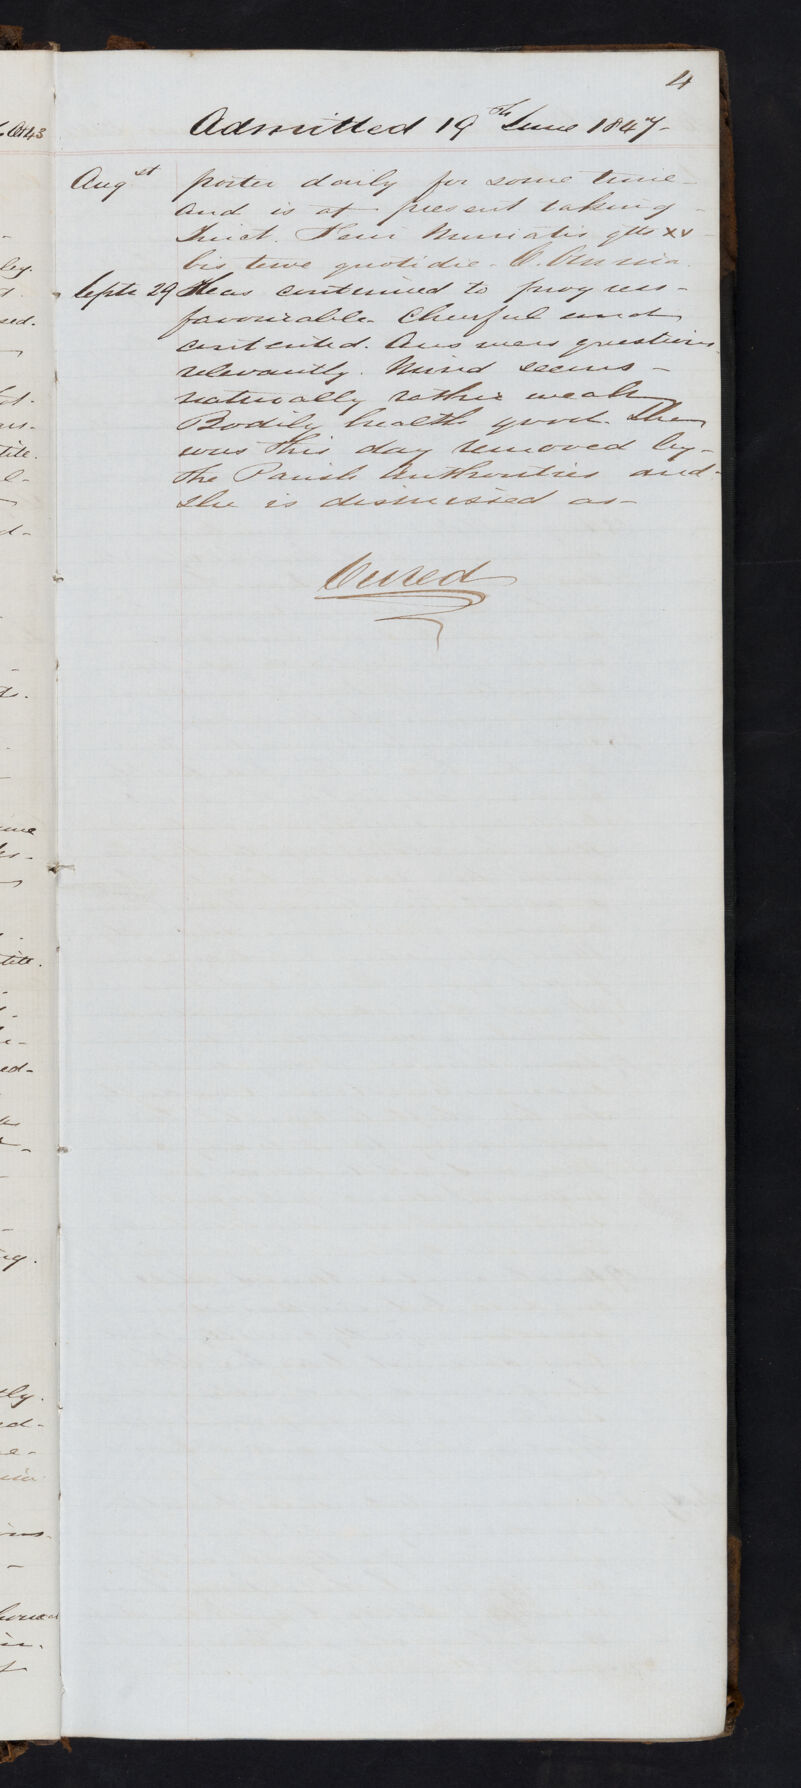 4
Admitted 19th June 1847-
Augst porter daily for some time-
and is at present taking-
Tinct. Ferri Muriatis gtts xv-
bis terve quotidie. C. Omnia.
Septr 29 Has continued to progress-
favourable. Cheerful and
contented. Answers questions
relevantly. Mind seems-
naturally rather weak
Bodily health good. She
was this day removed by-
the Parish Authorities and-
she is dismissed as-
Cured